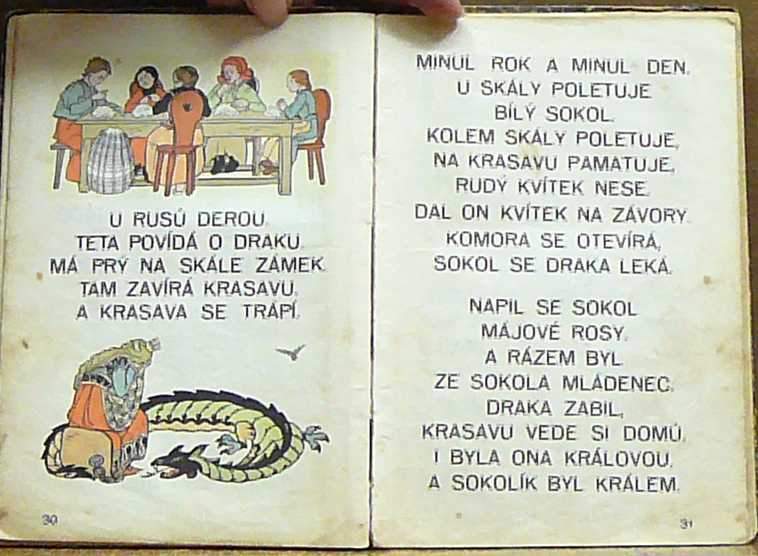 U RUSŮ DEROU.
TETA POVÍDÁ O DRAKU.
MÁ PRÝ NA SKÁLE ZÁMEK.
TAM ZAVÍRÁ KRASAVU,
A KRASAVA SE TRÁPÍ.
30
MINUL ROK A MINUL DEN,
U SKÁLY POLETUJE
BÍLÝ SOKOL.
KOLEM SKÁLY POLETUJE,
NA KRASAVU PAMATUJE,
RUDÝ KVÍTEK NESE.
DAL ON KVÍTEK NA ZÁVORY.
KOMORA SE OTEVÍRÁ,
SOKOL SE DRAKA LEKÁ.
NAPIL SE SOKOL
MÁJOVÉ ROSY.
A RÁZEM BYL
ZE SOKOLA MLÁDENEC.
DRAKA ZABIL,
KRASAVU VEDE SI DOMŮ.
I BYLA ONA KRÁLOVOU.
A SOKOLÍK BYL KRÁLEM.
31